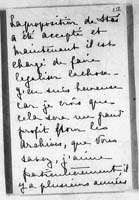 la proposition de Stas
a été accepté et
maintenant il est
chargé de faire
legaliser la chose.
J'en suis heureuse
car je crois que
cela sera un grand
profit pour les
que vous
savez, j'aime
particulièrement, il
y a plusieurs années